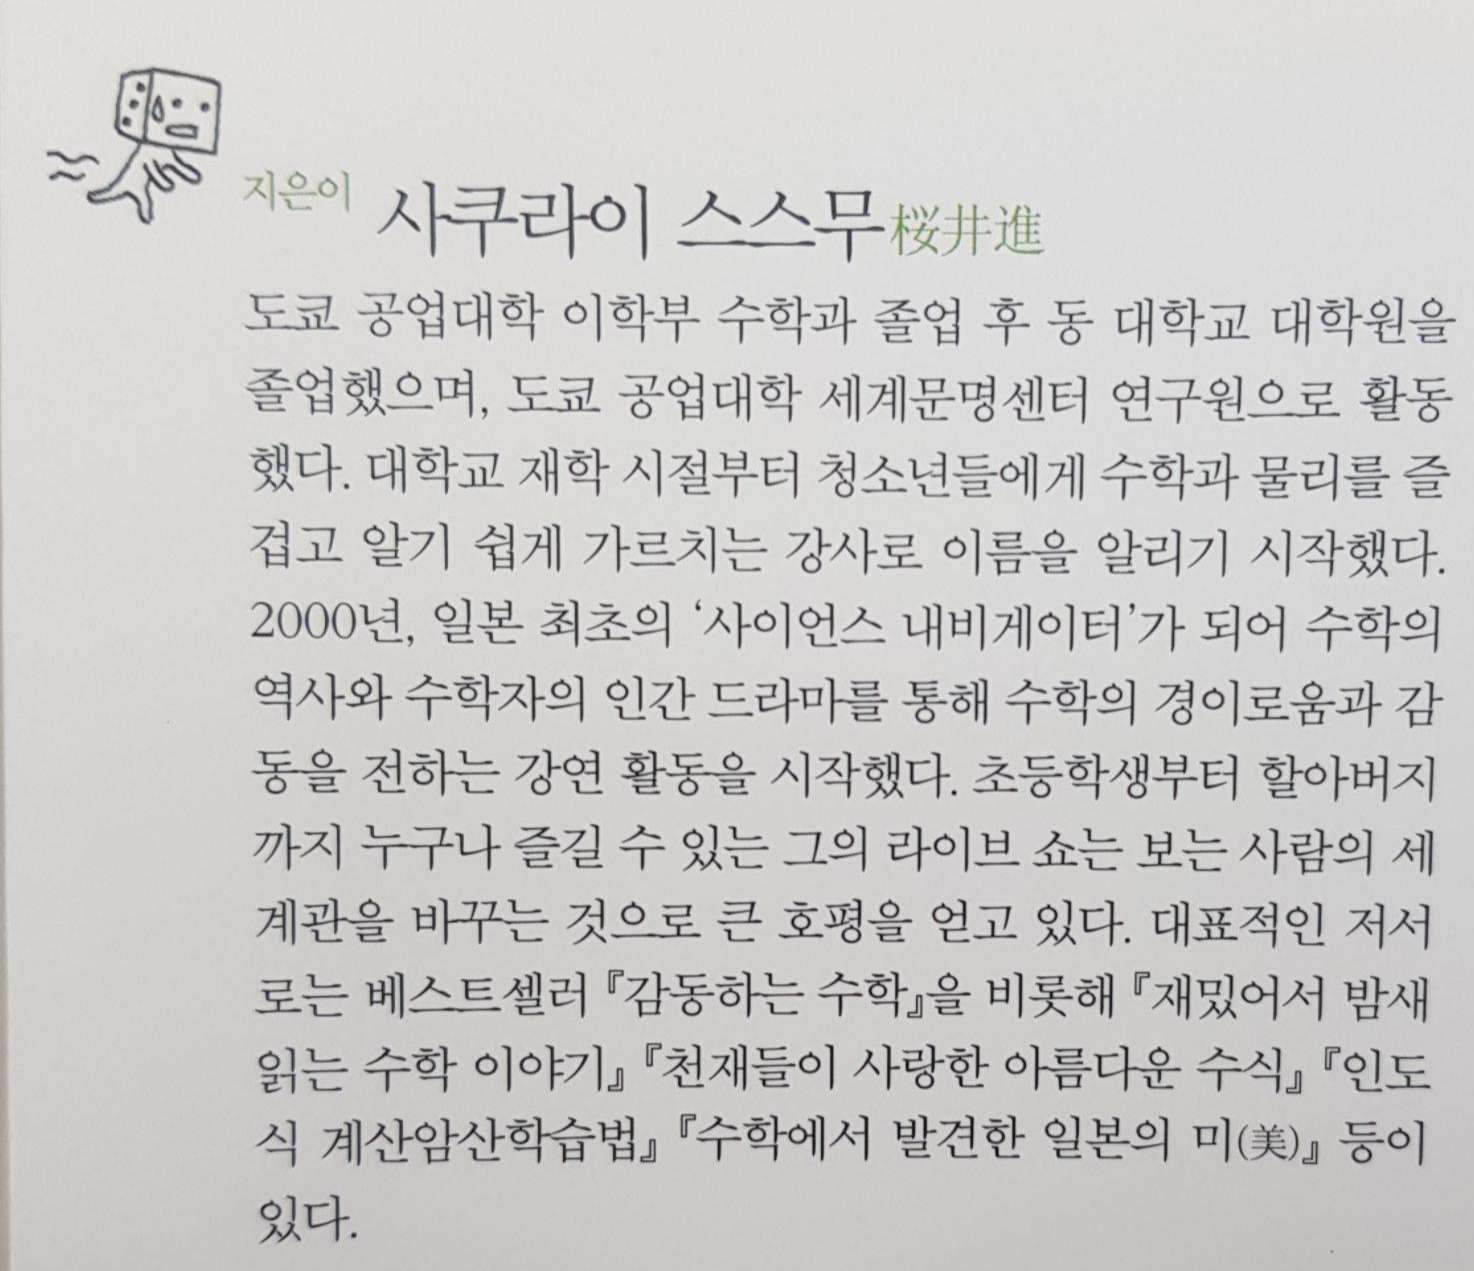 지은이 사쿠라이 스스무 桜井進
도쿄 공업대학 이학부 수학과 졸업 후 동 대학교 대학원을
졸업했으며, 도쿄 공업대학 세계문명센터 연구원으로 활동
했다. 대학교 재학 시절부터 청소년들에게 수학과 물리를 즐
겁고 알기 쉽게 가르치는 강사로 이름을 알리기 시작했다.
2000년, 일본 최초의 ‘사이언스 내비게이터’가 되어 수학의
역사와 수학자의 인간 드라마를 통해 수학의 경이로움과 감
동을 전하는 강연 활동을 시작했다. 초등학생부터 할아버지
까지 누구나 즐길 수 있는 그의 라이브 쇼는 보는 사람의 세
계관을 바꾸는 것으로 큰 호평을 얻고 있다. 대표적인 저서
로는 베스트셀러 『감동하는 수학』을 비롯해 『재밌어서 밤새
읽는 수학 이야기』 『천재들이 사랑한 아름다운 수식』 『인도
식 계산암산학습법』 『수학에서 발견한 일본의 미(美)』 등이
있다.